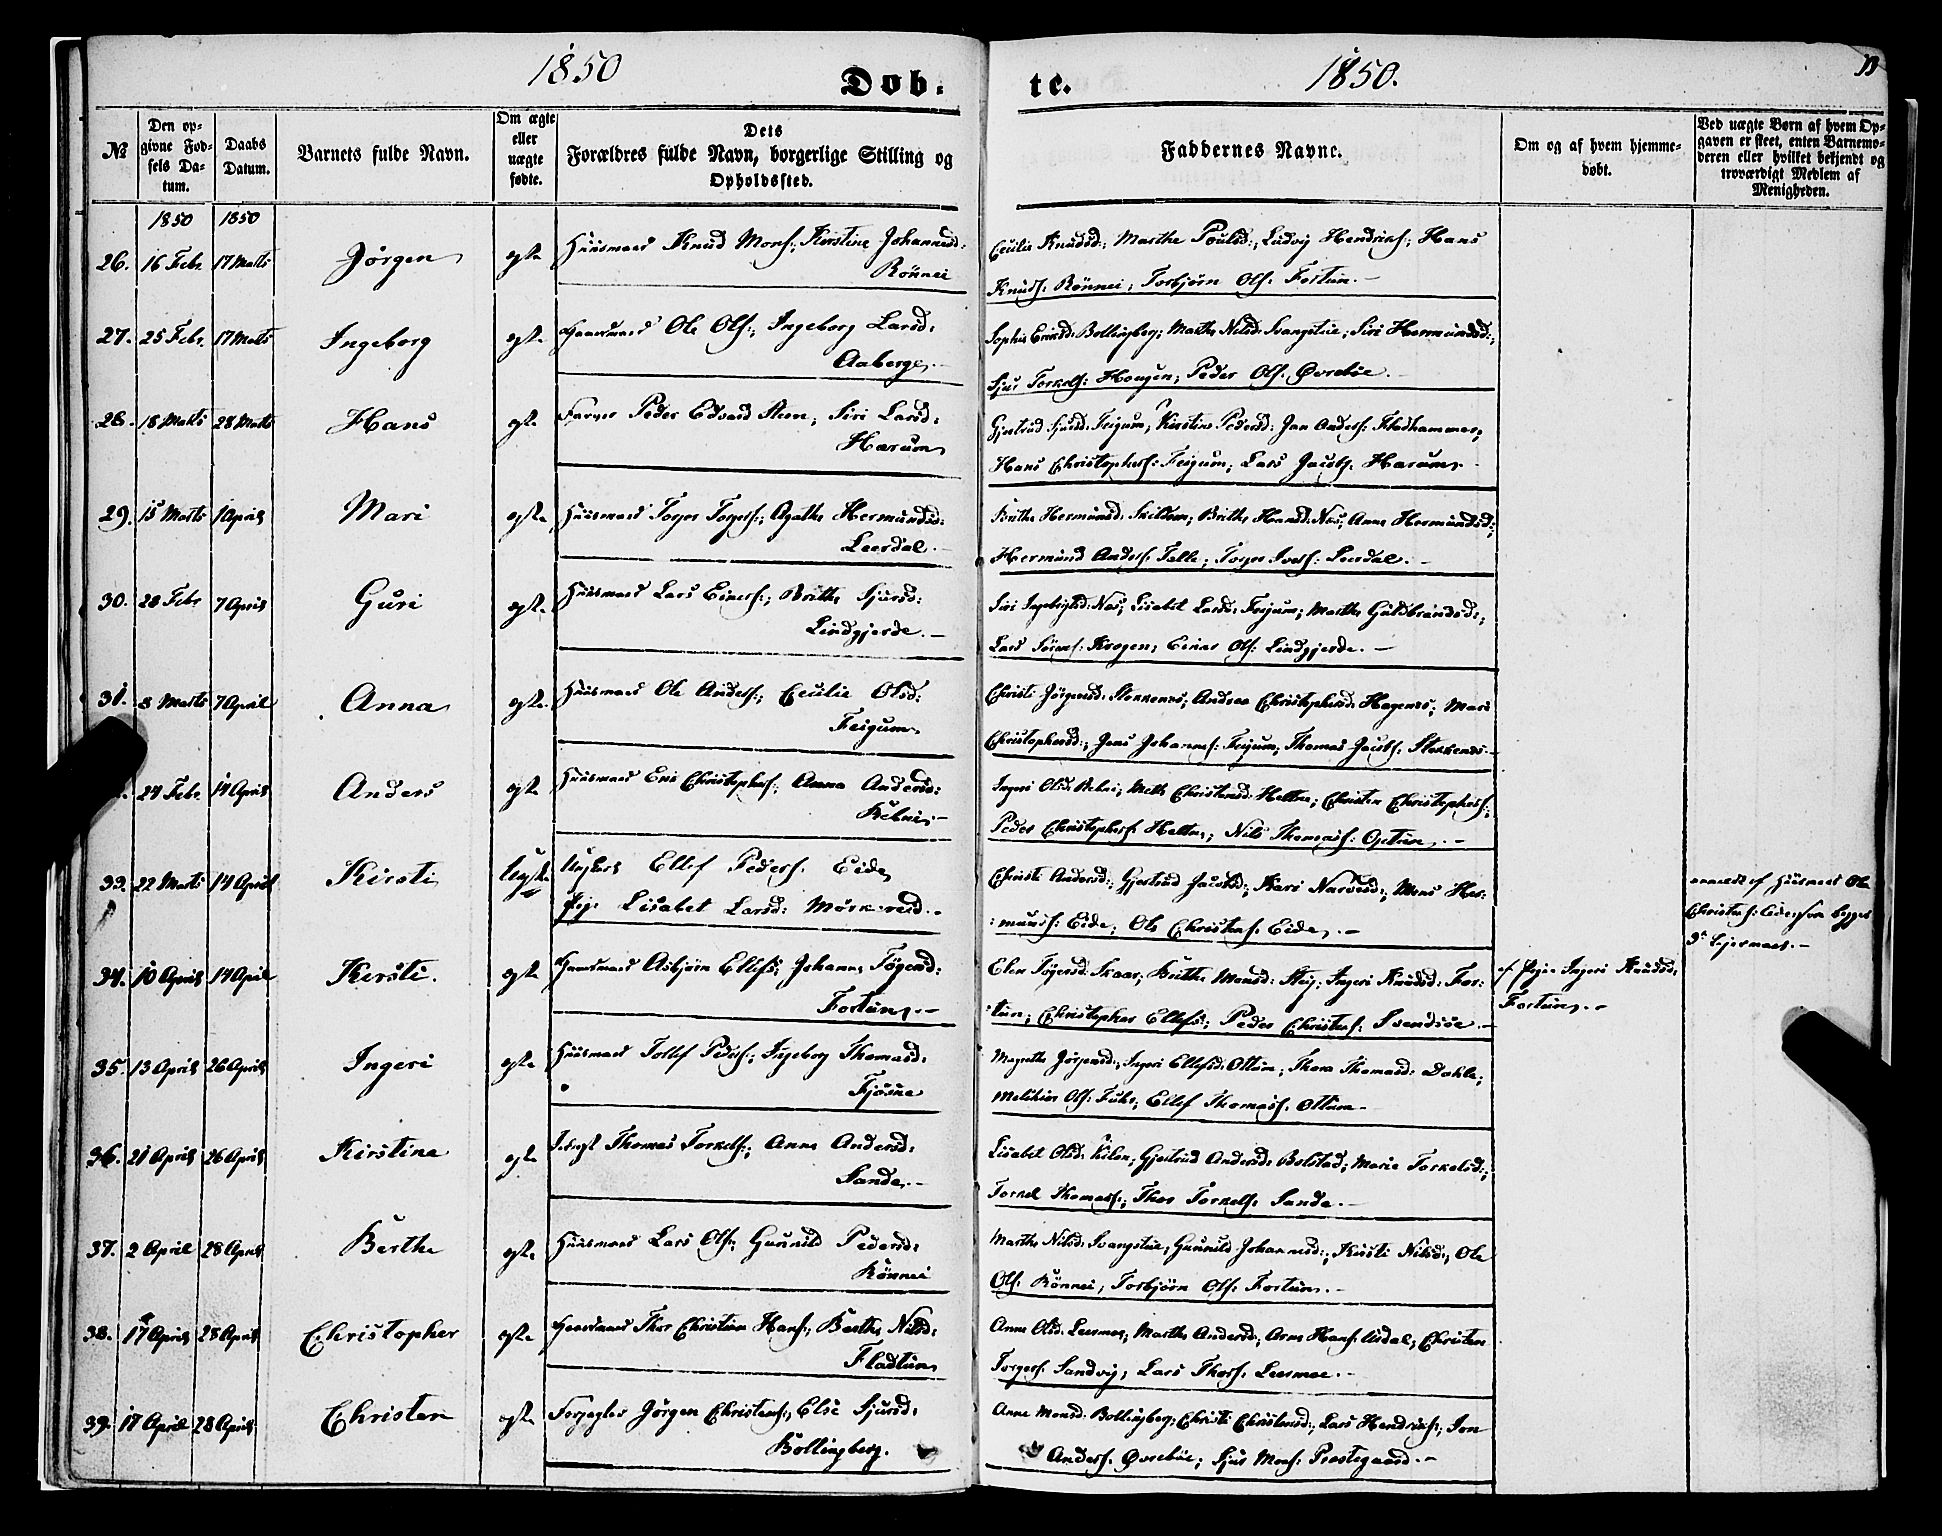 1850
Døb-
te.
1850.
№
Den opgivne Fødsels Datum.
Daabs Datum.
Barnets fulde Navn.
Om ægte eller uægte fødte.
Dets Forældres fulde Navn, borgerlige Stilling og Opholdssted.
Faddernes Navne.
Om og af hvem hjemmedøbt.
Ved uægte Børn af hvem Opgaven er skeet, enten Barnemoderen eller hvilket bekjendt og troværdigt Medlem af Menigheden.
1850 1850
26. 16 Febr. 17 Marts Jørgen egte Huusmand Knud Mons:, Kirstine Johannesd:
Rönnei
Cecilie Knudsd:, Marthe Poulsd:, Ludvig Hendriks:, Hans
Knuds: Rönnei, Torbjørn Ols: Fortun.-
27. 25 Febr. 17 Marts Ingeborg egte Gaardmand Ole Ols:, Ingeborg Larsd:
Aaberge.-
Bollingberg; Marthe Nilsd: Svangstüe; Siri Hermundsd:,
Sjur Torkels: Hougen; Peder Ols: Øvrebøe.
28. 18 Marts 28 Marts Hans egte Farver Peder Edvard; Siri Larsd:
Harum
Gjertrud Sjursd: Feigum, Kirstine Pedersd: Jan Anders: Fladhammer;
Hans Christophers: Feigum, Lars Jacobs: Harum.-
29. 15 Marts 1 April Mari egte Huusmand Torger Torgers:, Agathe Hermundsd:
Leerdal.-
Brithe Hermundsd:, Brithe Hansd: Næs, Anne Hermundsd:,
Hermund Anders: Talle; Torger Ivers: Leerdal.-
30. 28 Febr 7 April Guri egte Huusmand Lars Einers:, Brithe Sjursd:
Lindgjerde.-
Siri Ingebrigtsd: Næs, Lisabet Larsd: Feigum; Marthe Guldbrandsd:,
Lars Krogen, Einar Ols: Lindgjerde.-
31. 8 Marts 7 April Anna egte Huusmand Ole Anders:, Cecilie Olsd:
Feigum
Christi Jörgensd:; Andrea Christophersd: Hagenes; Mari
Christophersd:, Jens Johannes: Feigum, Thomas Jacobs:
24 Febr 14 April Anders egte Huusmand Eric Christophers: Anna Andersd:
Ingeri Olsd:, Mette Christensd: Heltne; Christen Christophers:,
Peder Christophers: Heltne; Nils Thomas: Optun.-
33. 22 Marts 14 April Kirsti Uegte Ungkarl Ellef Peders: Eide
Pige Lisabet Larsd: Mörkereid.-
Christi Andersd:, Gjertrud Jacobsd:, Kari Narvesd:, Mons Her-
:munds: Eide; Ole Christens: Eide.-
anmeldt af Huusmand Ole
Christens: Eide
34. 10 April 14 April Kersti. egte Huusmand Asbjörn Ellefs:, Johanne Tøgersd:
Fortun.-
Elen Tøgersd: Skaar, Brithe Monsd:, Ingeri Knudsd: For-
:tun; Christopher Ellefs:, Peder Christens: Svensöe.-
af Pige Ingeri Knudsd:
Fortun.-
35. 13 April 26 April Ingeri egte Huusmand Tollef Peders:, Ingeborg Thomasd:
Fjösne
Magrethe Jörgensd:, Ingeri Ellefsd: Ottum, Thora Thomasd: Dahle;
Ols:, Ellef Thomas: Ottum.-
36. 21 April 26 April Kirstine egte Thomas Torkels:, Anne Andersd:
Sande.-
Lisabet Olsd: Kilen; Gjertrud Andersd: Bolstad; Marie Torkelsd:,
Torkel Thomas:, Thor Torkels: Sande.-
37. 2 April 28 April Berthe egte Huusmand Lars Ols:, Gunnild Pedersd:
Rönnei
Marthe Nilsd: Svangstüe, Gunnild Johannesd:, Kirsti Nilsd:, Ole
Ols: Rönnei, Torbjørn Ols: Fortun.-
38. 17 April 28 April Christopher egte Gaardmand Thor Christian Hans:, Berthe Nilsd:
Fladtun
Anne Olsd: Leermoe, Marthe Andersd:, Arne Hans:, Christen
Torgers: Sandvig, Lars Thors: Leermoe.-
39. 17 April 28 April Christen egte Jörgen Christens:, Else Sjursd:
Bollingberg.
Anne Monsd: Bollingberg; Christi Christensd:, Lars Hendriks:, Jon
Anders: Øvrebøe; Sjur Mons: Prestegaard.-